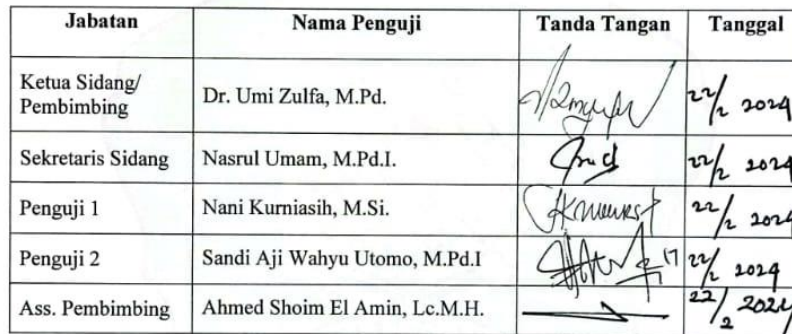 Jabatan Nama Penguji Tanda Tangan Tanggal
Ketua Sidang/
Pembimbing Dr. Umi Zulfa, M.Pd. 22/2 2024
Sekretaris Sidang Nasrul Umam, M.Pd.I. 22/2 2024
Penguji 1 Nani Kurniasih, M.Si. 22/2 2024
Penguji 2 Sandi Aji Wahyu Utomo, M.Pd.I 22/2 2024
Ass. Pembimbing Ahmed Shoim El Amin, Lc.M.H. 22/2 2024